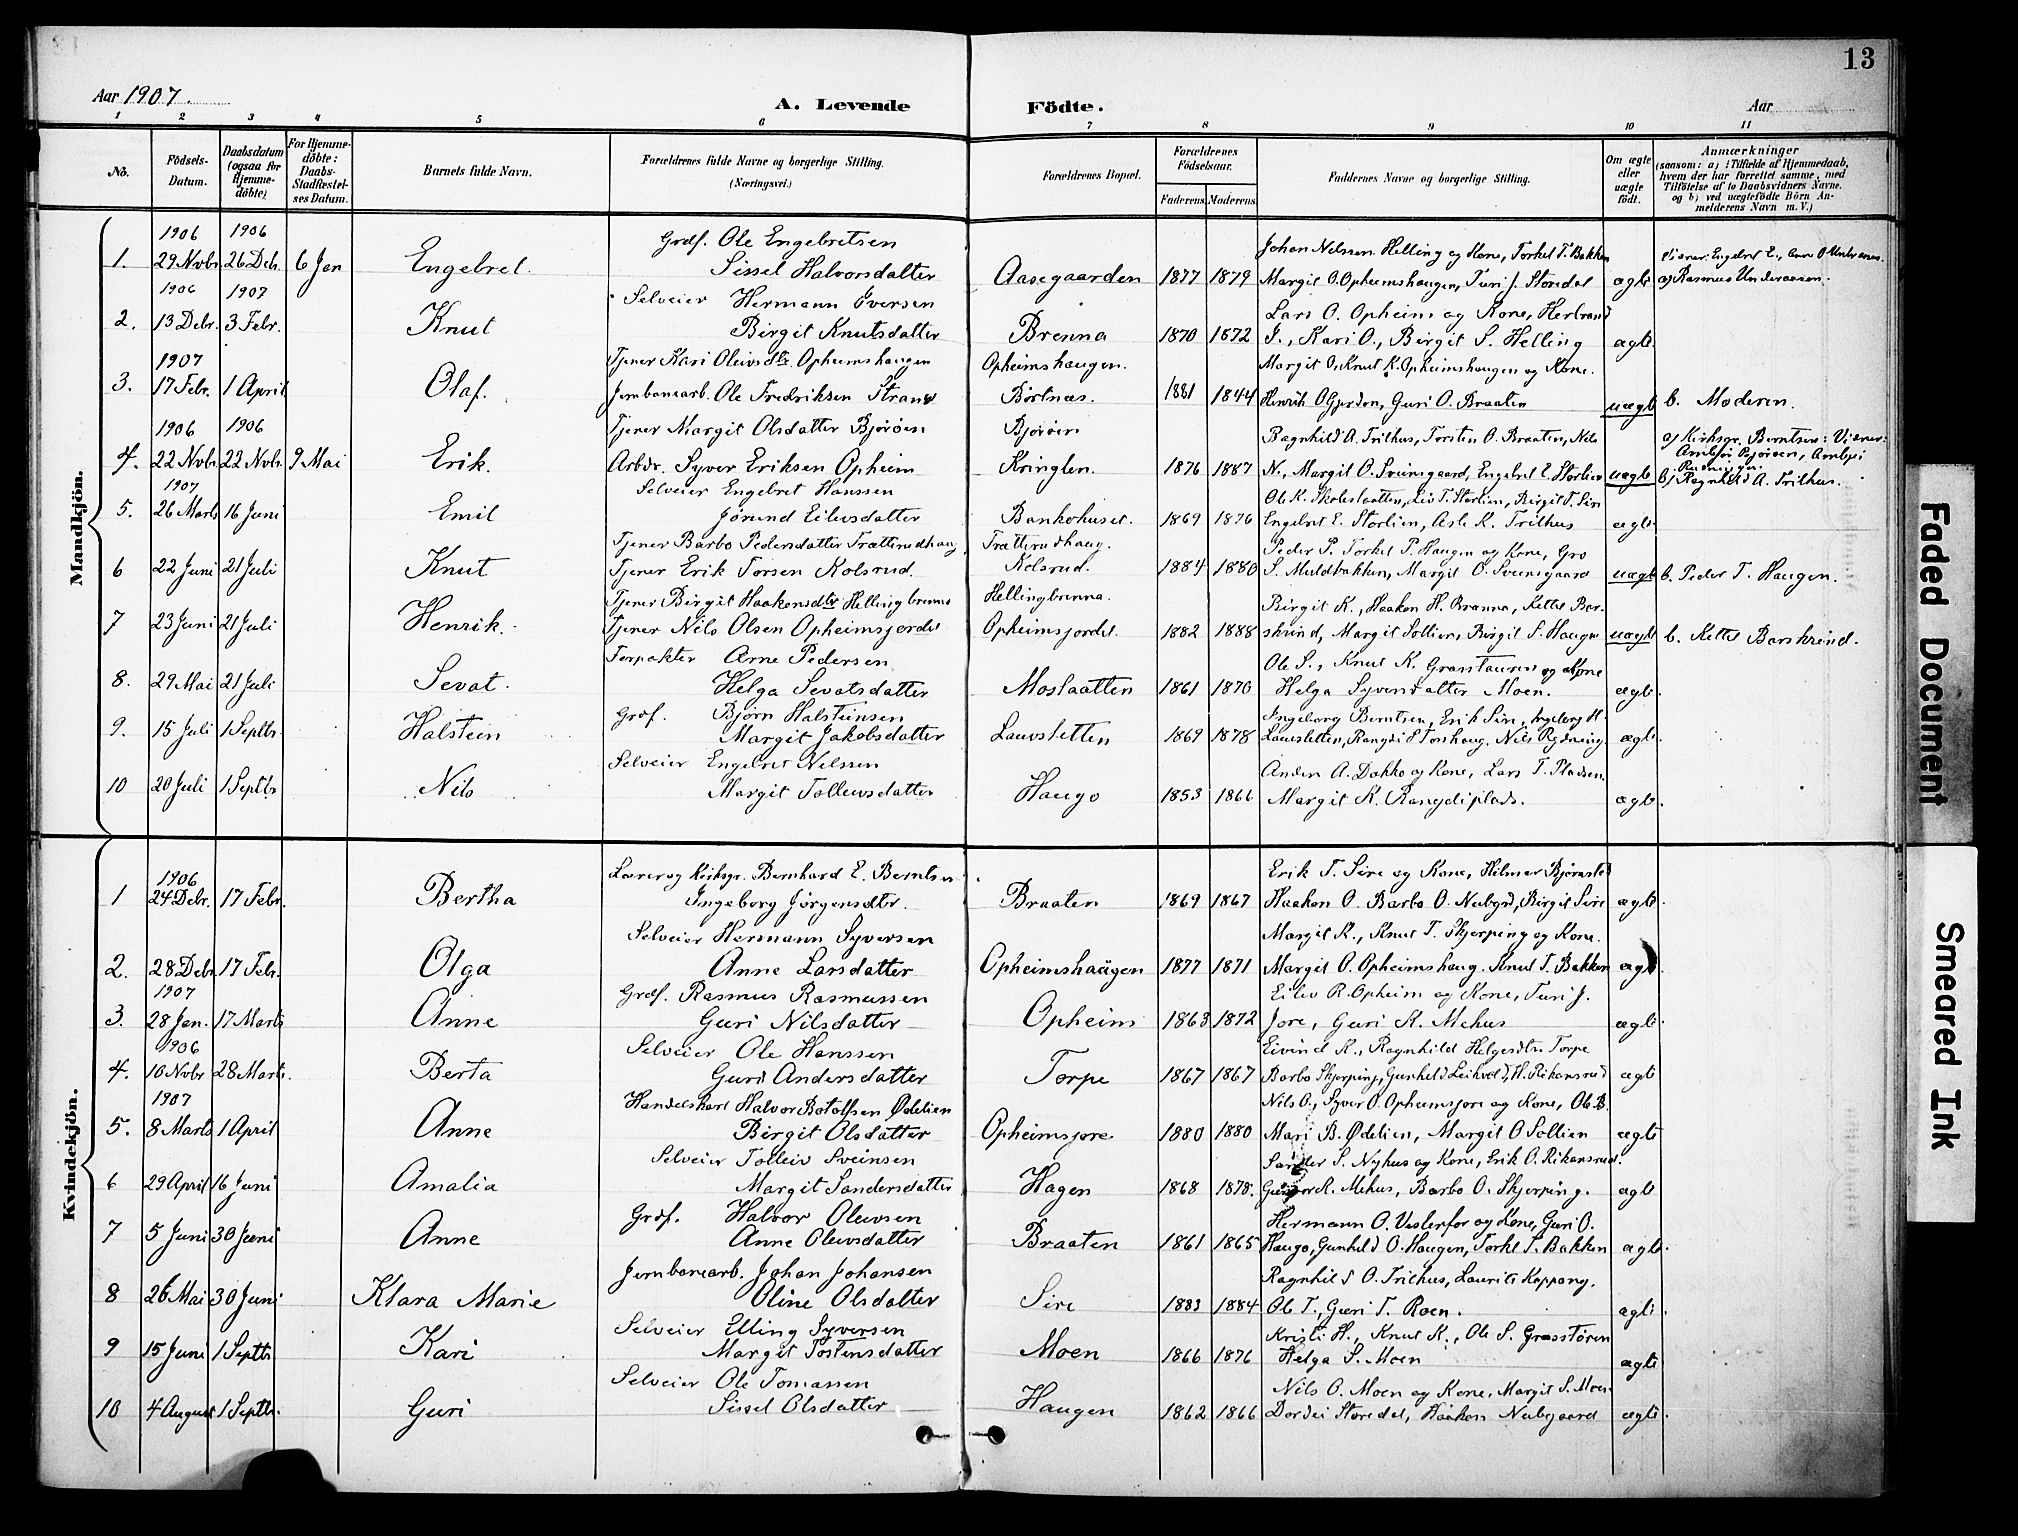 13
Aar 1907.
A. Levende Födte.
Aar
1 2 3 4 5 6 7 8 9 10 11
No.
Födsels-Datum.
Daabsdatum (ogsaa for Hjemme-döbte)
For Hjemme-döbte: Daabs-Stadfæstel-ses Datum.
Barnets fulde Navn.
Forældrenes fulde Navne og borgerlige Stilling.
(Næringsvei.)
Forældrenes Bopæl.
Forældrenes Födselsaar.
Faderens Moderens
Faddernes Navne og borgerlige Stilling.
Om ægte eller uægte födt.
Anmærkninger
(saasom: a) i Tilfælde af Hjemmedaab, hvem der har forrettet samme, med Tilföielse af to Daabsvidners Navne. og b) ved uægtefödte Börn An-melderens Navn m. V.)
Mandkjön.
1906 1906
Grdf. Ole Engebretsen Johan Nelssen Helling og Kone, Torkel T. Bakken
1. 29 Novbr 26 Deb. 6 Jan Engebret. Sissel Halvorsdatter Aasegaarden 1877 1879 Margit O. Opheimshaugen, Turi J. Storedal ægte a) Rasmus Underaasen.
1906 1907
Selveier Hermann Iversen Lars O. Opheim og Kone, Herbrand
2. 13 Debr. 3 Febr. Knut Birgit Knutsdatter Brenna 1870 1872 J., Kari O., Birgit S. Helling ægte.
1907 Tjener Kari Oleivsdtr. Opheimshaugen Opheimshaugen. Margit O. Knut K. Opheimshaugen og Kone.
3. 17 Febr. 1 April Olaf. Jernbanearb. Ole Fredriksen Strand Börtnæs. 1881 1844 Henrik O Gjerdon, Guri O. Braaten uægte b. Moderen.
1906 1906 Tjener Margit Olsdatter Björöen Björöen Ragnhild A. Trilhus, Torsten O. Braaten, Nils a) Kirksgr. Berntsen: Vidner:
4. 22 Novbr 22 Novbr. 9 Mai Erik. Arbdr. Syver Eriksen Opheim Kringlen. 1876 1887 N., Margit O. Svensgaard, Engebret E. Storlien uægte b) Ragnhild A. Trilhus.
1907 Selveier Engebret Hanssen Ole K. Skoleslaatten, Liv T. Storlien, Birgit T. Sire
5. 26 Marts 16 Juni Emil Jörund Eilevsdatter Bankohuset. 1869 1876 Engebret E. Storlien, Asle K. Trilhus ægte.
Tjener Barbo Pedersdatter Trætterudhaug Trætterudhaug. Peder P. Torkel P. Haugen og Kone, Gro
6 22 Juni 21 Juli Knut Tjener Erik Torsen Kolsrud. Kolsrud. 1884 1880 S. Muldbakken, Margit O. Svensgaard uægte b. Peder T. Haugen.
Tjener Birgit Haakensdtr Hellingbrenna Hellingbrenna. Birgit K., Haaken H. Brenna, Kettel Bar-
7 23 Juni 21 Juli Henrik. Tjener Nils Olsen Opheimsjordet Opheimsjordet 1882 1888 skrind, Margit Sollien, Birgit S. Haugen uægte b. Kettel Barskrind.
Forpakter Arne Pedersen Ole S., Knut K. Grasstauren og Kone
8. 29 Mai 21 Juli Sevat. Helga Sevatsdatter Moslaatten 1861 1870 Helga Syversdatter Moen. ægte.
Grdf. Bjørn Halsteinsen Ingeborg Berntsen, Erik Sire, Ingeborg H.
9. 15 Juli 1 Septbr. Halstein Margit Jakobsdatter Lauvsletten 1869 1878 Lauvsletten, Rangdi S Torshaug. Nils Rydning. ægte.
Selveier Engebret Nelssen Anders A. Dokko og Kone, Lars T. Pladsen
10 20 Juli 1 Septbr Nils Margit Tollevsdatter Haugo 1853 1866 Margit K. Rangdiplads. ægte.
Kvindekjön.
1906 Lærer og Kirksgr. Bernhard E. Berntsen Erik T. Sire og Kone, Hilmar Bjørnstad
1 24 Debr. 17 Febr. Bertha Ingeborg Jörgensdtr. Braaten 1869 1867 Haaken O. Barbo O. Nubgrd, Birgit Sire ægte.
Selveier Hermann Syversen Margit K., Knut T. Skjerping og Kone.
2. 28 Debr 17 Febr. Olga Anne Larsdatter Opheimshaugen 1877 1871 Margit O. Opheimshaug. Knut T. Bakken ægte.
1907 Grdf. Rasmus Rasmussen Eilev R. Opheim og Kone, Turi J.
3. 28 Jan. 17 Marts Anne Guri Nilsdatter Opheim 1863 1872 Jore, Guri K. Mehus ægte.
1906 Selveier Ole Hanssen Eivind K., Ragnhild Helgesdtr. Torpe
4. 10 Novbr 28 Marts. Berta Guri Andersdatter Torpe 1867 1867 Barbo Skjerping, Gunhild Leikvold, H. Rikansrud ægte
1907 Handelskarl Halvor Botolfsen Ødelien Nils O., Syver O. Opheimsjore og Kone, Ole B.
5. 8 Marts 1 April Anne Birgit Olsdatter Opheimsjore 1880 1880 Mari B. Ødelien, Margit O Sollien ægte
Selveier Tolleiv Sveinsen Sander S. Nyhus og Kone, Erik O. Rikansrud.
6 29 April 16 Juni Amalia Margit Sandersdatter Hagen 1868 1878. K. Mehus, Barbo O. Skjerping. ægte
Grdf. Halvor Olevsen Hermann O. Vesterfor og Kone, Guri O.
7 5 Juni 30 Juni Anne Anne Olevsdatter Braaten 1861 1865 Haugo, Gunhild O. Haugen, Torkel T. Bakken ægte.
Jernbanearb. Johan Johansen Ragnhild O. Trilhus, Laurits Koppang.
8 26 Mai 30 Juni Klara Marie Oline Olsdatter Sire 1883 1884 Ole T., Guri T. Roen. ægte.
Selveier Elling Syversen Kristi H., Knut K., Ole S. Grasstören
9 15 Juni 1 Septbr Kari Margit Tostensdatter Moen 1866 1876 Helga S. Moen ægte
Selveier Ole Tomassen Nils O. Moen og Kone, Margit S. Moen
10 4 August 1 Septbr. Guri Sissel Olsdatter Haugen 1862 1866 Dordei Storedal, Haakon Nubgaard ægte.
Faded Document
Smeared Ink